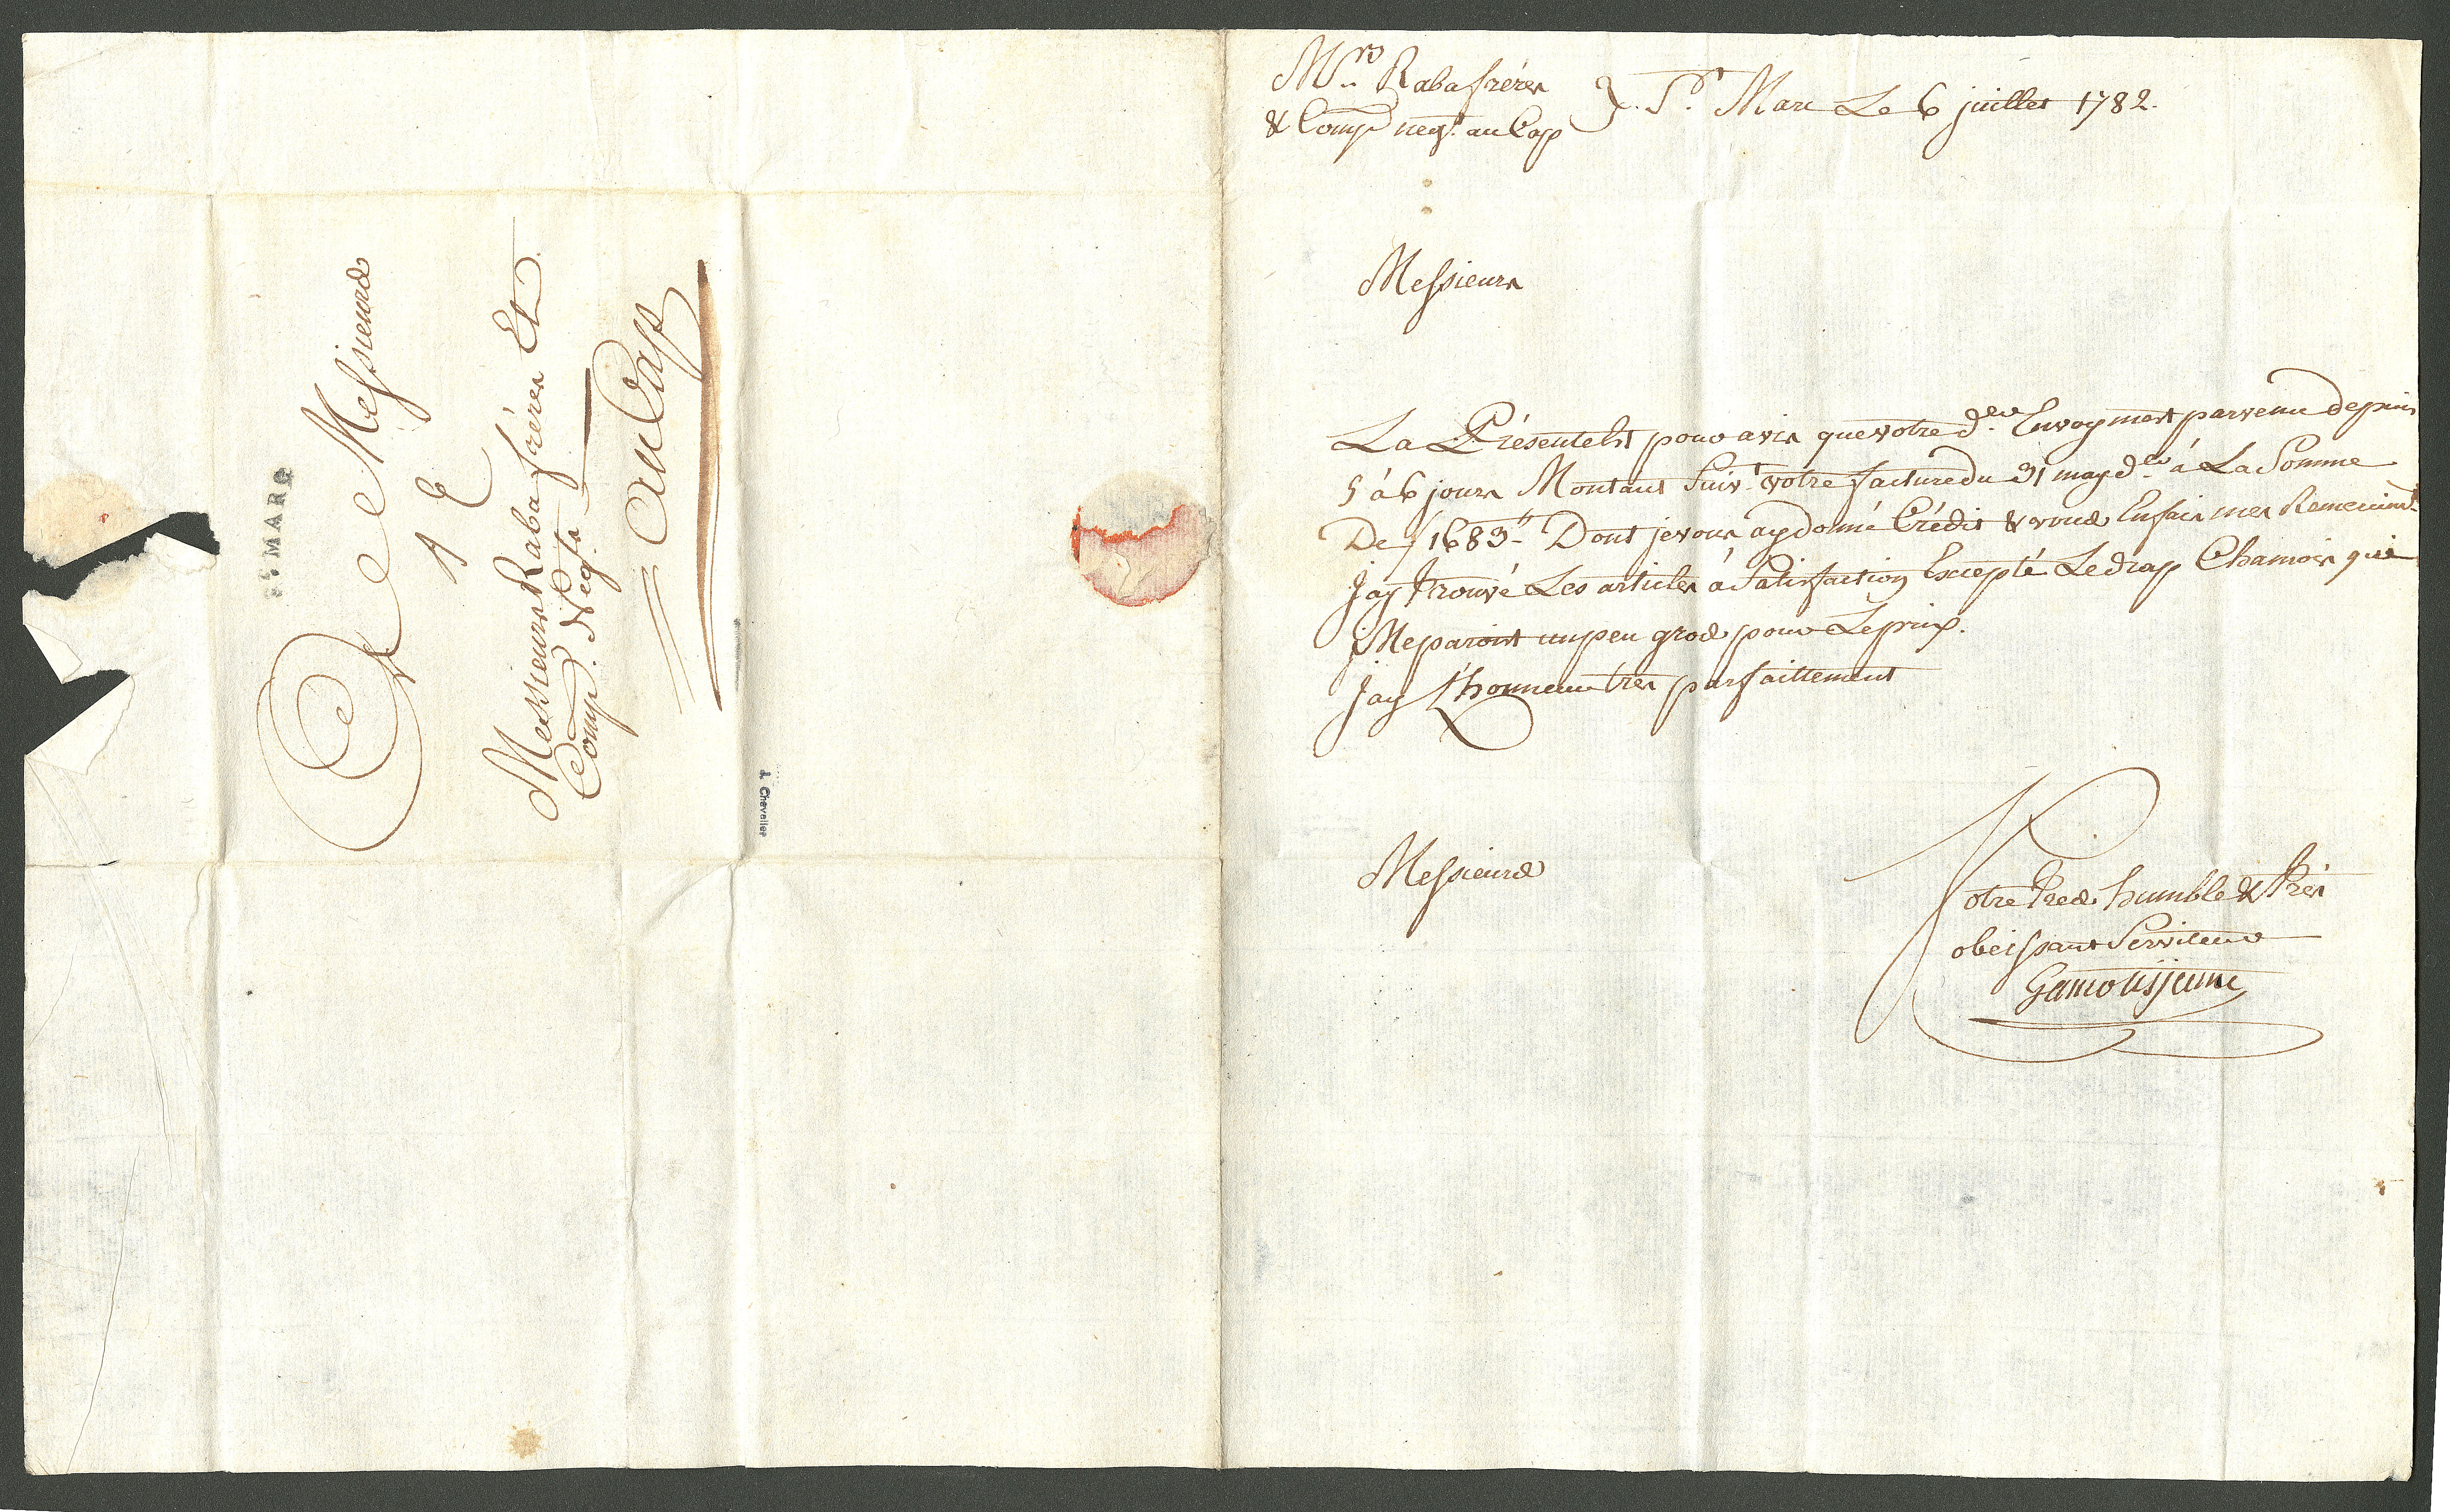 A Messieurs
Messieurs Raba freres Et
Comp. Negts
Au Cap
ST MARC
J. Chevalier
Mrs Raba fréres
& Comp negts au Cap
St Marc Le 6 juillet 1782.
Messieurs
La Présente Est pour avis que votre d.er Envoy m'est parvenu depuis
5 à 6 jours Montant Suivt votre facture du 31 may d.er à La Somme
De 1683 Dont je vous ay donné Crédit & vous En fais mes Remercimts
J'ay trouvé Les articles à Satisfaction Excepté Le drap Chamois qui
Me paroist un peu gros pour Le prix.
J'ay L'honneur tres parfaittement
Messieurs
Votre tres humble & trés
obeissant Serviteur
jeune